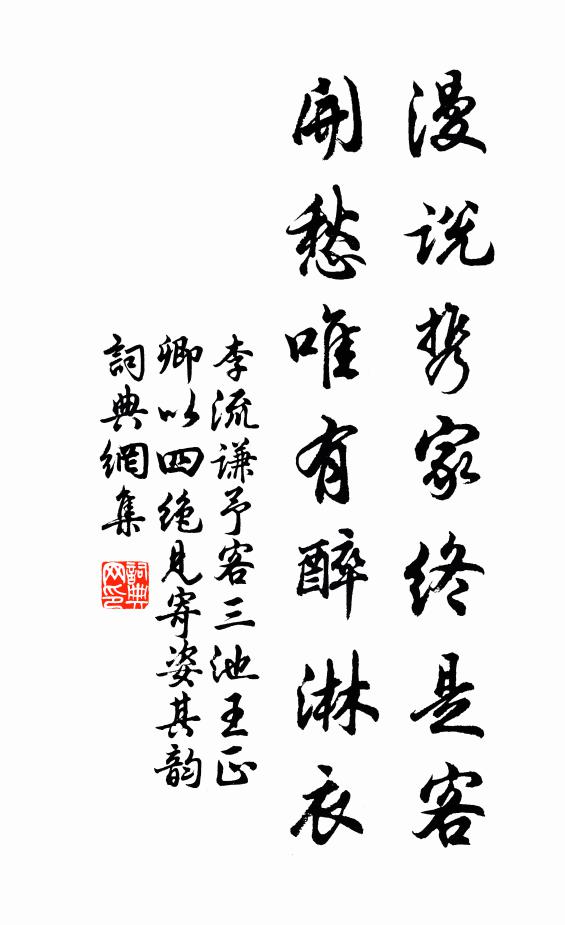 漫说携家终是客
開愁唯有醉淋衣
李流谦予客三池王正
卿以四绝見寄姿其韵
詞典網集
詞典
网印